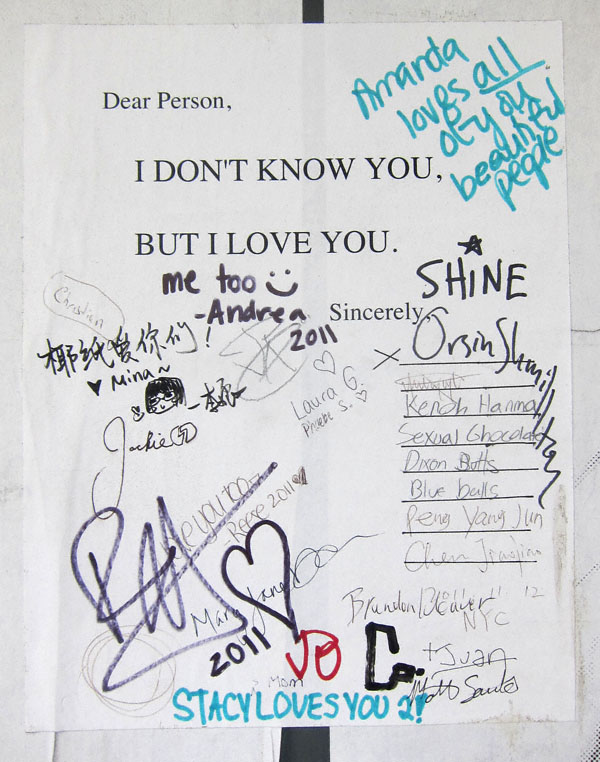 Dear Person,
Amanda
loves all
of you
beautiful
people
I DON'T KNOW YOU,
BUT I LOVE YOU.
me too
-Andrea
2011
Sincerely,
SHINE
Christian
椰纸爱你们!
♥ Mina~
Jackie
Laura G.
Phoebe S.
X Orsin
Kenah Hanma
Sexual Chocolate
Dixon Butts
Blue balls
Peng Yang Jun
Chen
you too
Reese 2011
Mary Jane
2011
Brandon
NYC
JB
C.
+Juan
Matt
Mom
STACY LOVES YOU 2!